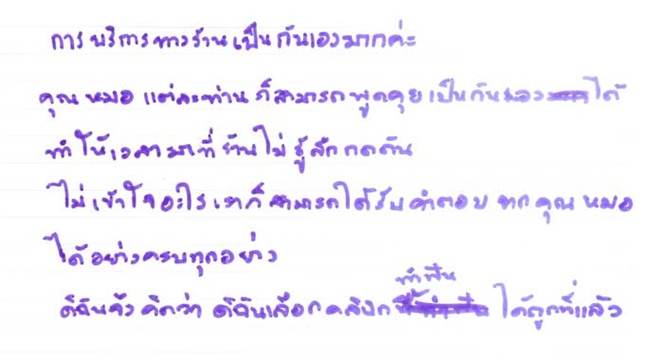 การบริการทางร้านเป็นกันเองมากค่ะ
คุณหมอ แต่ละท่านก็สามารถพูดคุยเป็นกันเองได้
ทำให้เวลามาที่ร้านไม่รู้สึกกดดัน
ไม่เข้าใจอะไรเราก็สามารถได้รับคำตอบจากคุณหมอ
ได้อย่างครบทุกอย่าง
ดิฉันจึงคิดว่า ดิฉันเลือกคลินิกทำฟันได้ถูกที่แล้ว